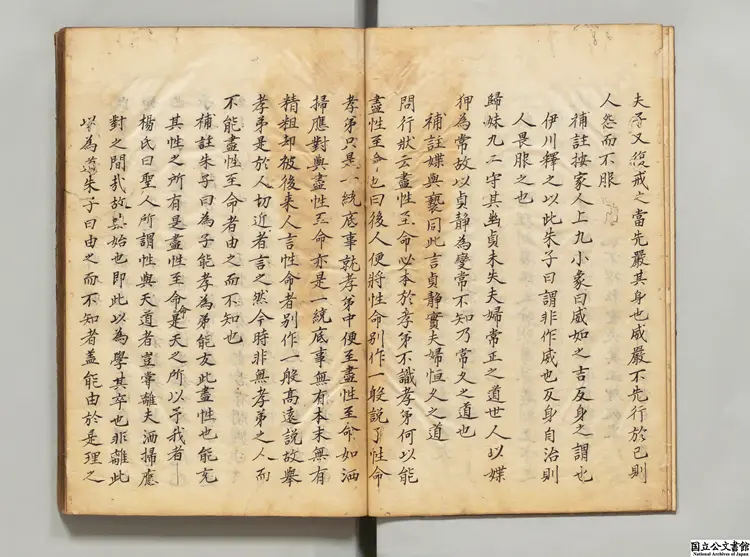 夫子又復戒之當先嚴其身也威嚴不先行於己則
人怨而不服
補註按家人上九小象曰威如之吉反身之謂也
伊川釋之以此朱子曰謂非作威也反身自治則
人畏服之也
歸妹九二守其幽貞未失夫婦常正之道世人以媟
狎為常故以貞静為變常不知乃常久之道也
補註媟與褻同此言貞静實夫婦恒久之道
問行狀云盡性至命必本於孝弟不識孝弟何以能
盡性至命也曰後人便將性命別作一般說了性命
孝弟只是一統底事就孝弟中便至盡性至命如洒
掃應對與盡性至命亦是一統底事無有本末無有
精粗却被後来人言性命者別作一般高遠說故舉
孝弟是於人切近者言之然今時非無孝弟之人而
不能盡性至命者由之而不知也
補註朱子曰為子能孝為弟能友此盡性也能充
其性之所有是盡性至命命是天之所以予我者
楊氏曰聖人所謂性與天道者豈甞離夫洒掃應
對之間哉故其始也即此以為學其卒也非離此
以為道朱子曰由之而不知者盖能由於是理之
国立公文書館
National Archives of Japan